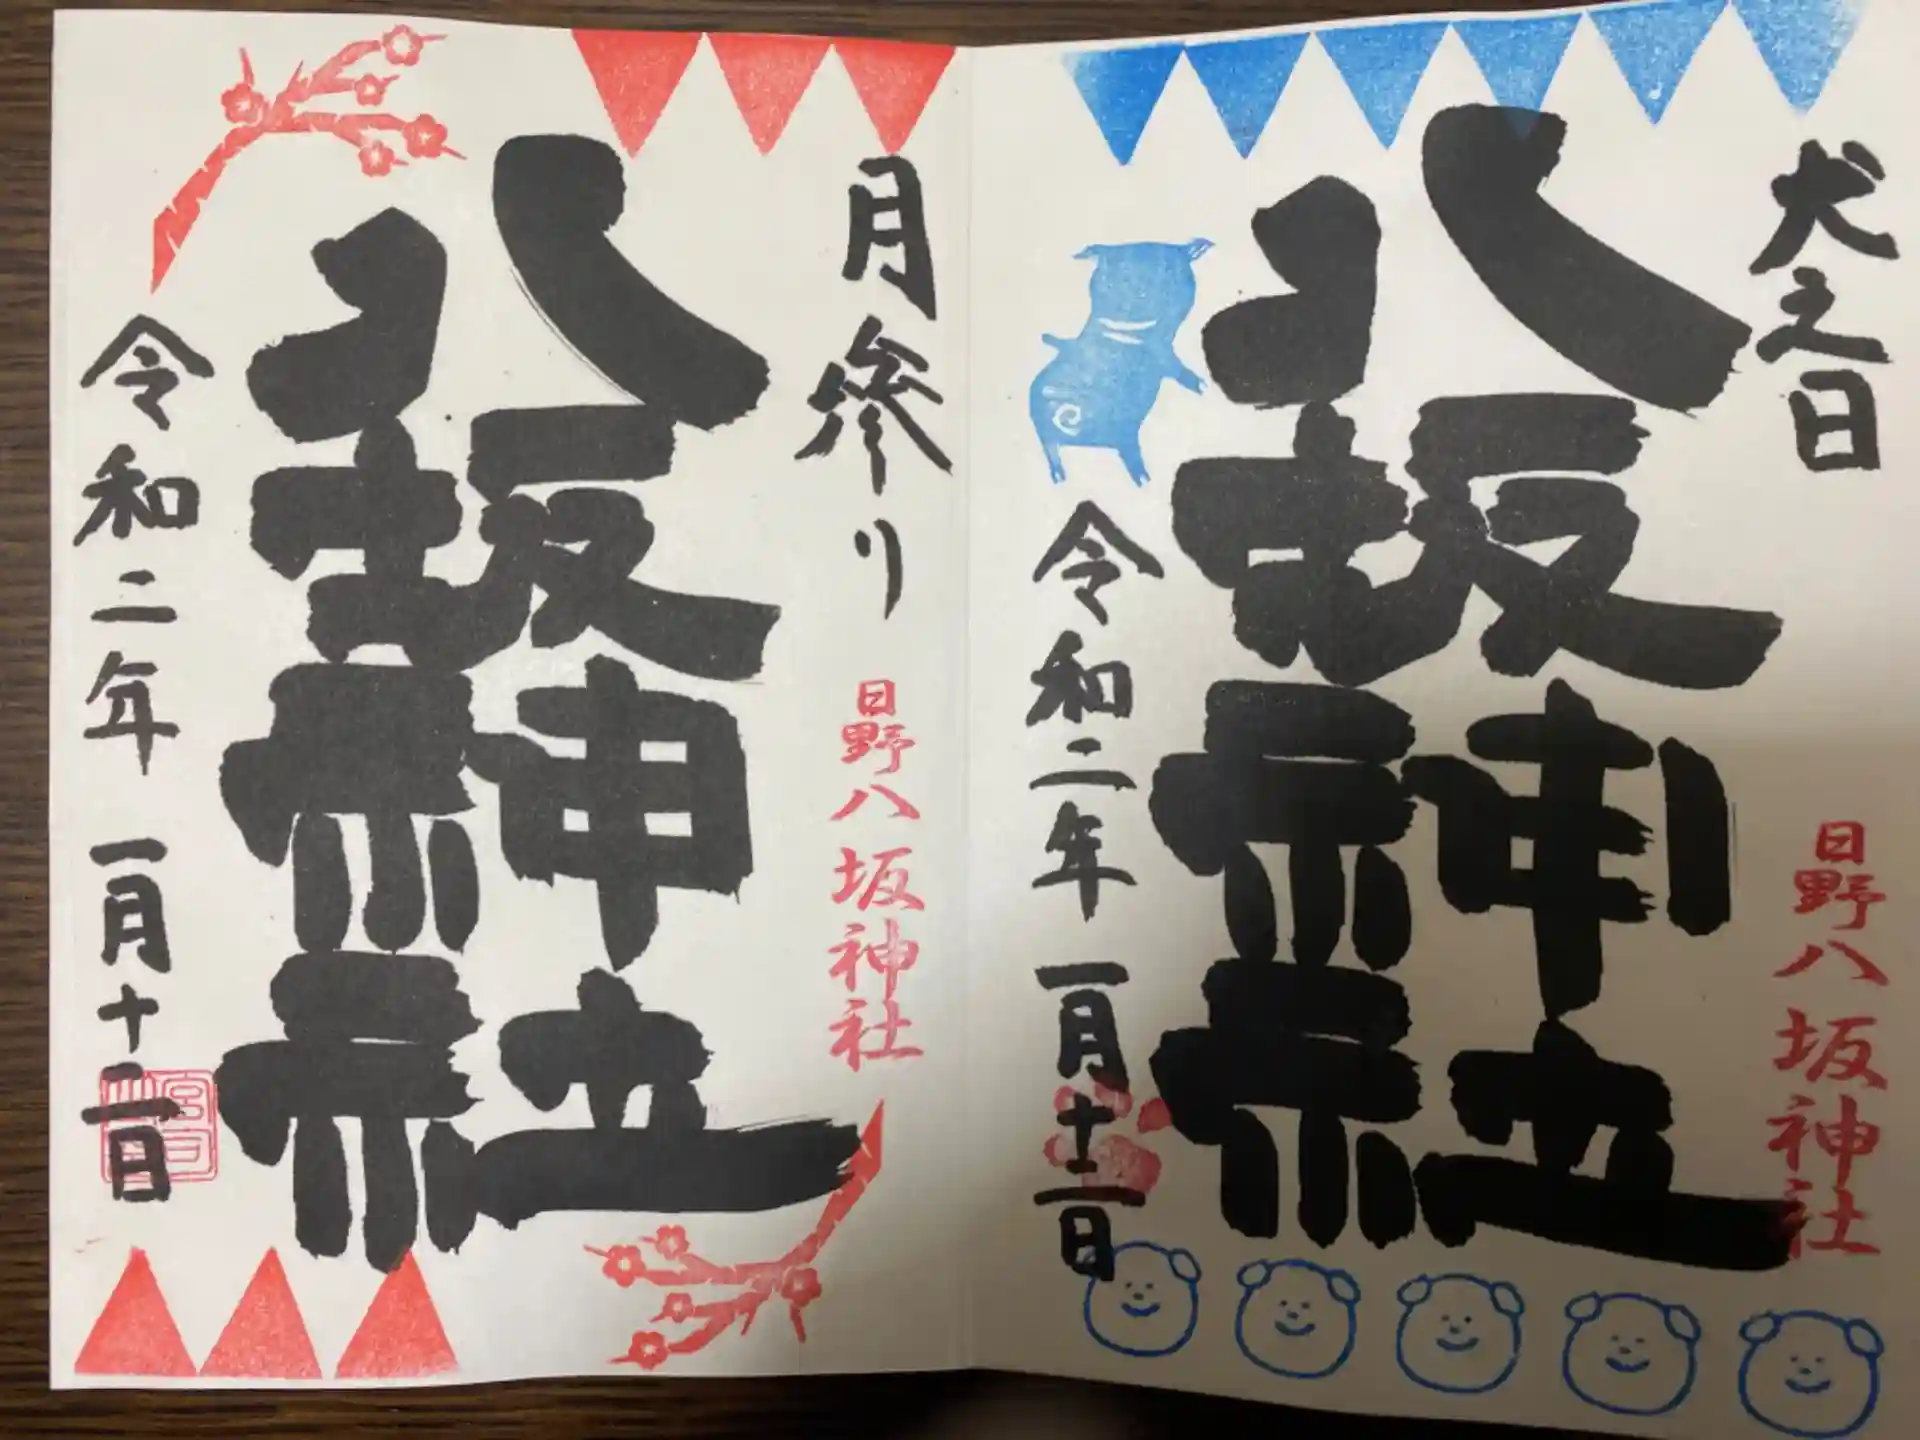 犬之日
八坂神社
日野八坂神社
令和二年 一月十二日
月参り
八坂神社
日野八坂神社
令和二年 一月十二日